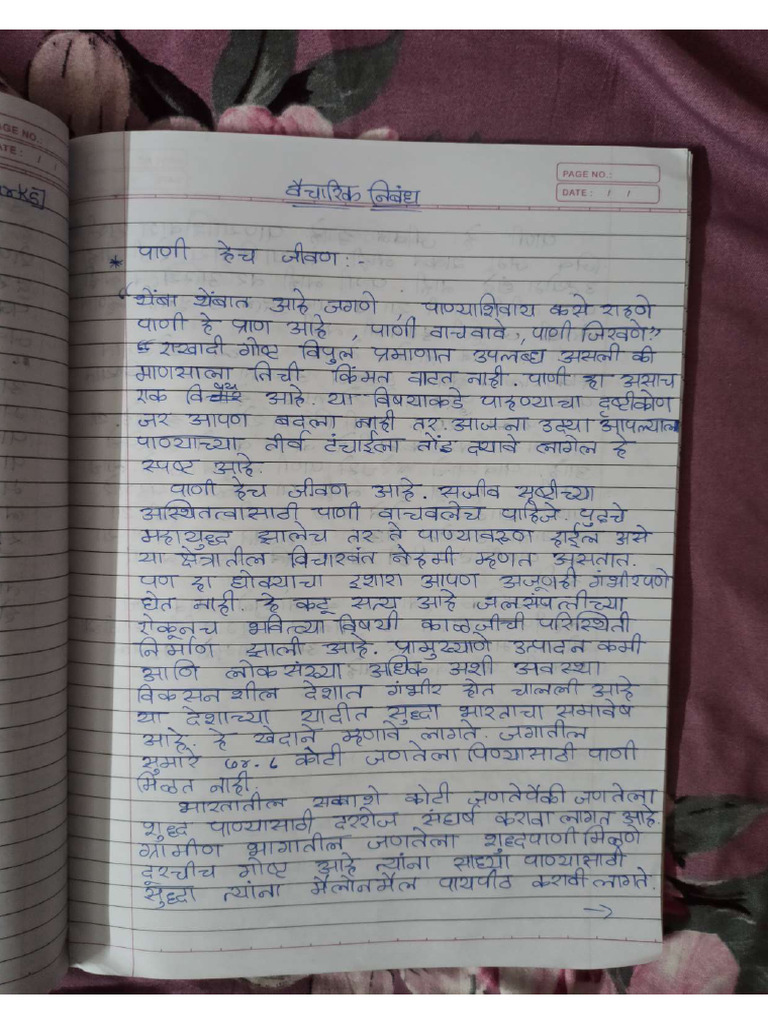 AGE NO.
ATE: / /
orks]
PAGE NO.:
DATE: / /
वैचारिक निबंध
* पाणी हेच जीवण :-
“थेंबा थेंबात आहे जगणे , पाण्याशिवाय कसे राहणे
पाणी हे प्राण आहे , पाणी वाचवावे , पाणी जिरवणे”
एखादी गोष्ट विपुल प्रमाणात उपलब्ध असली की
माणसाला तिची किंमत वाटत नाही. पाणी हा असाच
एक विषय आहे. या विषयाकडे पाहण्याचा दृष्टीकोण
जर आपण बदला नाही तर आज ना उद्या आपल्याला
पाण्याच्या तीव्र टंचाईला तोंड द्यावे लागेल हे
स्पष्ट आहे.
पाणी हेच जीवण आहे. सजीव सृष्टीच्या
अस्थितत्वासाठी पाणी वाचवलेच पाहिजे. पुढचे
महायुध्द झालेच तर ते पाण्यावरुण होईल असे
या क्षेत्रातील विचारवंत नेहमी म्हणत असतात.
पण हा धोक्याचा इशारा आपण अजूणही गंभीरपणे
घेत नाही. हे कटू सत्य आहे जलसंपत्तीच्या
एकूनच भवितव्या विषयी काळजीची परिस्थिती
निर्माण झाली आहे. प्रामुख्याणे उत्पादन कमी
आणि लोकसंख्या अधिक अशी अवस्था
विकसनशील देशात गंभीर होत चालली आहे
या देशाच्या यादीत सुध्दा भारताचा समावेष
आहे. हे खेदाने म्हणावे लागते. जगातील
सुमारे ७४.८ कोटी जणतेला पिण्यासाठी पाणी
मिळत नाही.
भारतातील सव्वाशे कोटी जणतेपैकी जणतेला
शुध्द पाण्यासाठी दररोज संघर्ष करावा लागत आहे.
ग्रामीण भागातील जणतेला शुध्दपाणी मिळणे
दूरचीच गोष्ट आहे त्यांना साध्या पाण्यासाठी
सुध्दा त्यांना मैलोनमैल पायपीठ करावी लागते.
→